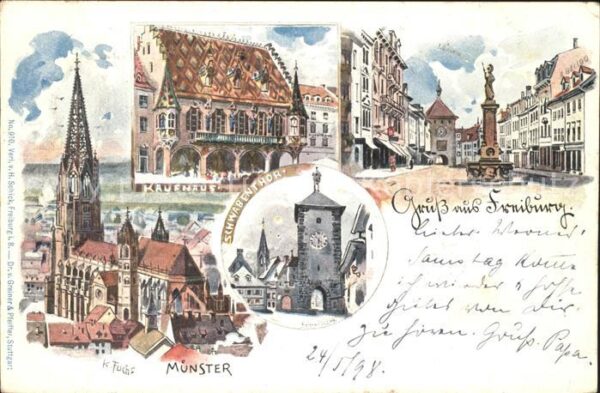 KAUFHAUS
SCHWABENTHOR
Gruß aus Freiburg.
Lieber Werner!
Samstag
ich wieder & hoffe
von Dir
zu hören. Gruß. Papa.
24/5/98.
K. Fuchs
MÜNSTER
No. 970, Verl. v. H. Schick, Freiburg i. B. — Dr. v. Greiner & Pfeiffer, Stuttgart